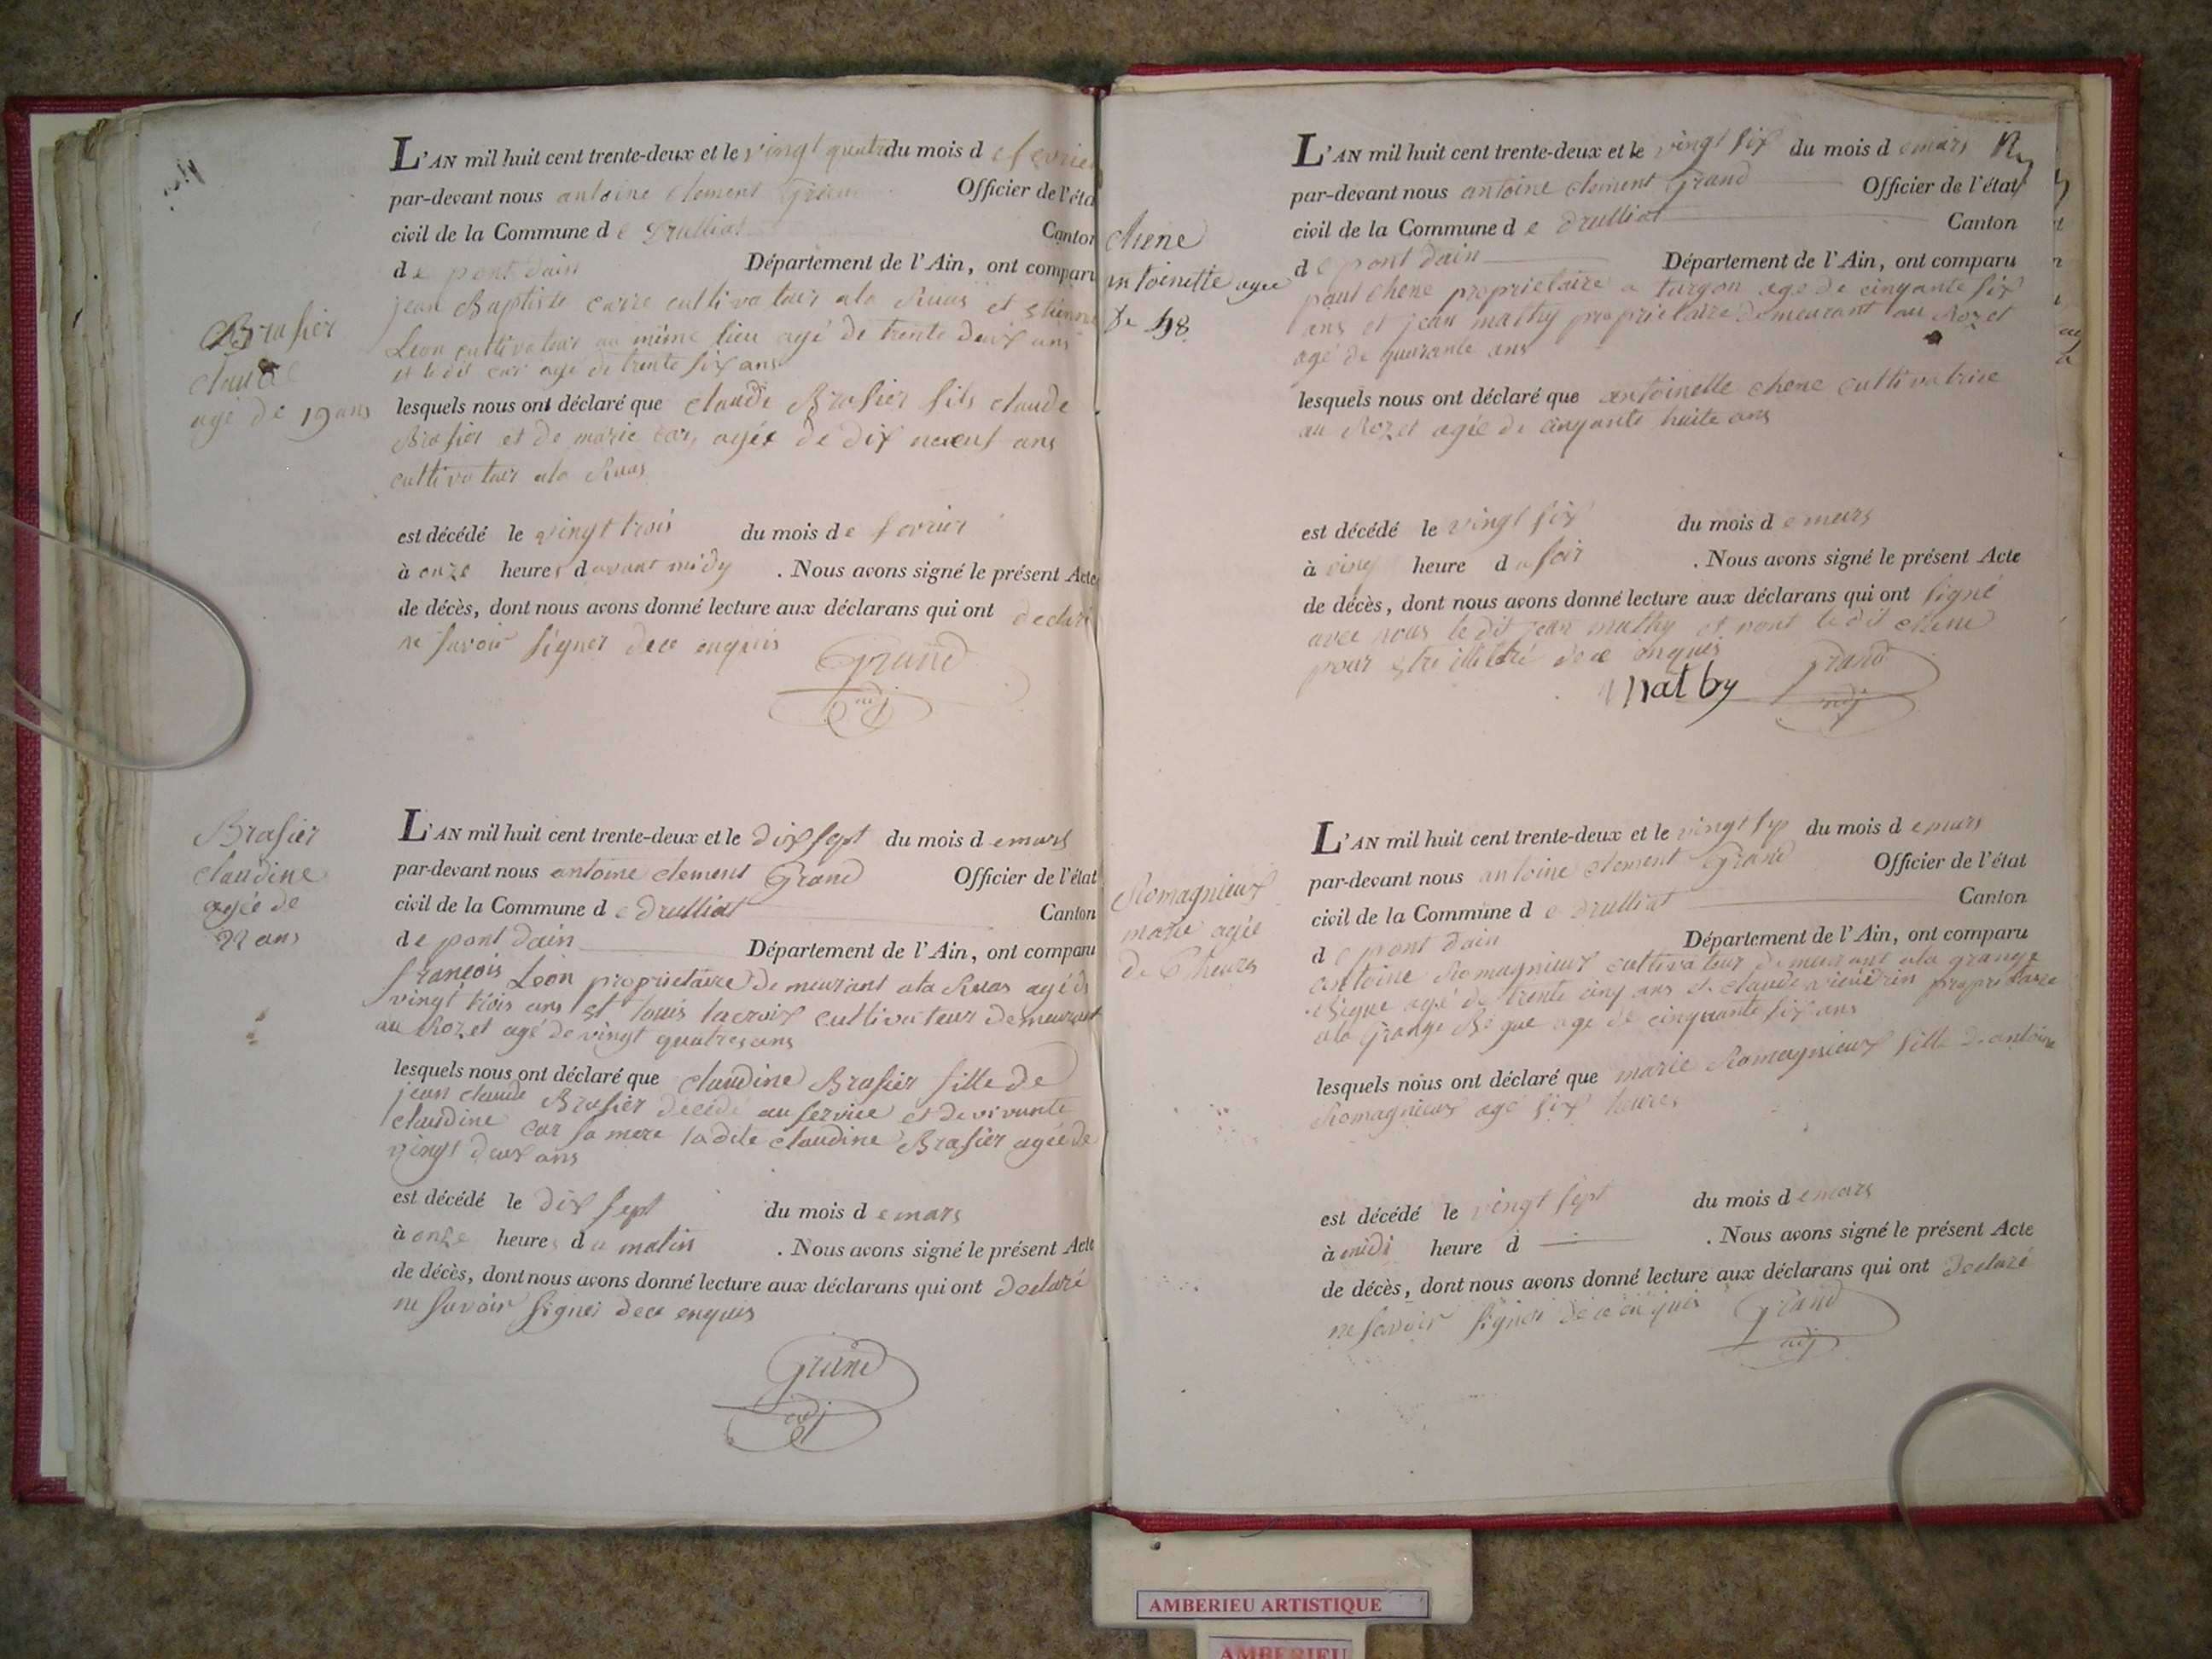 Brasier
claude
agé de 19 ans
L'AN mil huit cent trente-deux et le vingt quatre du mois d e fevrier
par-devant nous antoine clement Grand Officier de l'éta
civil de la Commune d e Drulliat Canton
d e pont dain Département de l'Ain, ont comparu
jean Baptiste carre cultivateur ala Ruas et etienne
Leon cultivateur au même lieu agé de trente deux ans
et le dit car agé de trente six ans
lesquels nous ont déclaré que claude Brasier fils claude
Brasier et de marie car, agée de dix neuf ans
cultivateur ala Ruas
est décédé le vingt trois du mois d e fevrier
à onze heures d avant midy . Nous avons signé le présent Acte
de décès, dont nous avons donné lecture aux déclarans qui ont declaré
ne savoir signer dece enquis
Grand
adj
Brasier
claudine
agée de
22 ans
L'AN mil huit cent trente-deux et le dix sept du mois d e mars
par-devant nous antoine clement Grand Officier de l'état
civil de la Commune d e Drulliat Canton
d e pont dain Département de l'Ain, ont comparu
françois Leon proprietaire demeurant ala Ruas agé de
vingt trois ans et louis lacroix cultivateur demeurant
au Rozet agé de vingt quatres ans
lesquels nous ont déclaré que claudine Brasier fille de
jean claude Brasier décédé au service et de vivante
claudine car sa mere ladite claudine Brasier agée de
vingt deux ans
est décédé le dix sept du mois d e mars
à onze heures d u matin . Nous avons signé le présent Acte
de décès, dont nous avons donné lecture aux déclarans qui ont declaré
ne savoir signer dece enquis
Grand
adj
chene
antoinette agee
de 58
L'AN mil huit cent trente-deux et le vingt six du mois d e mars
par-devant nous antoine clement Grand Officier de l'état
civil de la Commune d e Drulliat Canton
d e pont dain Département de l'Ain, ont comparu
paul chene proprietaire a turgon agé de cinquante six
ans et jean mathy proprietaire demeurant au Rozet
agé de quarante ans
lesquels nous ont déclaré que antoinette chene cultivatrice
au Rozet agée de cinquante huite ans
est décédé le vingt six du mois d e mars
à cinq heure d u soir . Nous avons signé le présent Acte
de décès, dont nous avons donné lecture aux déclarans qui ont signé
avec nous le dit jean mathy et nont le dit chene
pour etre illitéré de ce enquis
Mathy Grand
adj
Romagnieux
marie agée
de 6 heures
L'AN mil huit cent trente-deux et le vingt sep du mois d e mars
par-devant nous antoine clement Grand Officier de l'état
civil de la Commune d e Drulliat Canton
d e pont dain Département de l'Ain, ont comparu
antoine Romagnieux cultivateur demeurant ala grange
Bègue agé de trente cinq ans et claude proprietaire
ala Grange Bègue age de cinquante six ans
lesquels nous ont déclaré que marie Romagnieux fille d antoine
Romagnieux agé six heures
est décédé le vingt sept du mois d e mars
à midi heure d . Nous avons signé le présent Acte
de décès, dont nous avons donné lecture aux déclarans qui ont declaré
ne savoir signer de ce enquis Grand
adj
AMBERIEU ARTISTIQUE
AMBERIEU